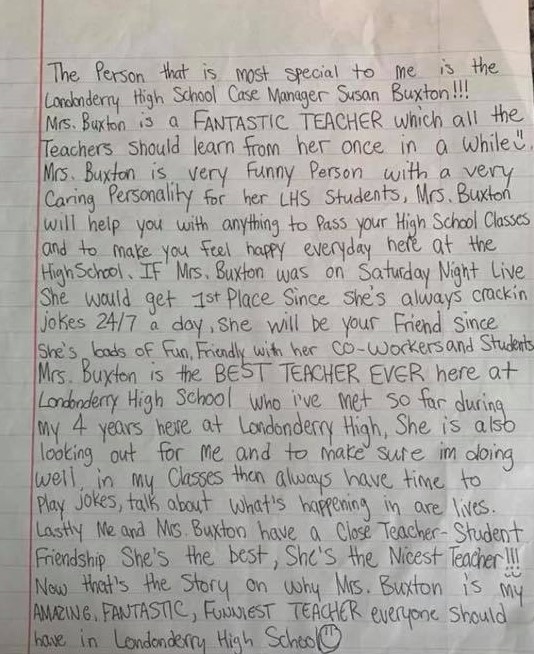 The Person that is most special to me is the
Londonderry High School Case Manager Susan Buxton!!!
Mrs. Buxton is a FANTASTIC TEACHER which all the
Teachers should learn from her once in a while.
Mrs. Buxton is very Funny Person with a very
Caring Personality for her LHS Students, Mrs. Buxton
will help you with anything to Pass your High School Classes
and to make you feel happy everyday here at the
High School. IF Mrs. Buxton was on Saturday Night Live
She would get 1st Place Since she's always crackin
jokes 24/7 a day, She will be your Friend since
She's loads of Fun, Friendly with her co-workers and Students
Mrs. Buxton is the BEST TEACHER EVER here at
Londonderry High School who i've met so far during
my 4 years here at Londonderry High, She is also
looking out for me and to make sure im doing
well, in my Classes then always have time to
Play jokes, talk about what's happening in are lives.
Lastly Me and Mrs. Buxton have a Close Teacher-Student
Friendship She's the best, She's the Nicest Teacher!!!
Now that's the Story on why Mrs. Buxton is my
AMAZING, FANTASTIC, FUNNIEST TEACHER everyone should
have in Londonderry High School